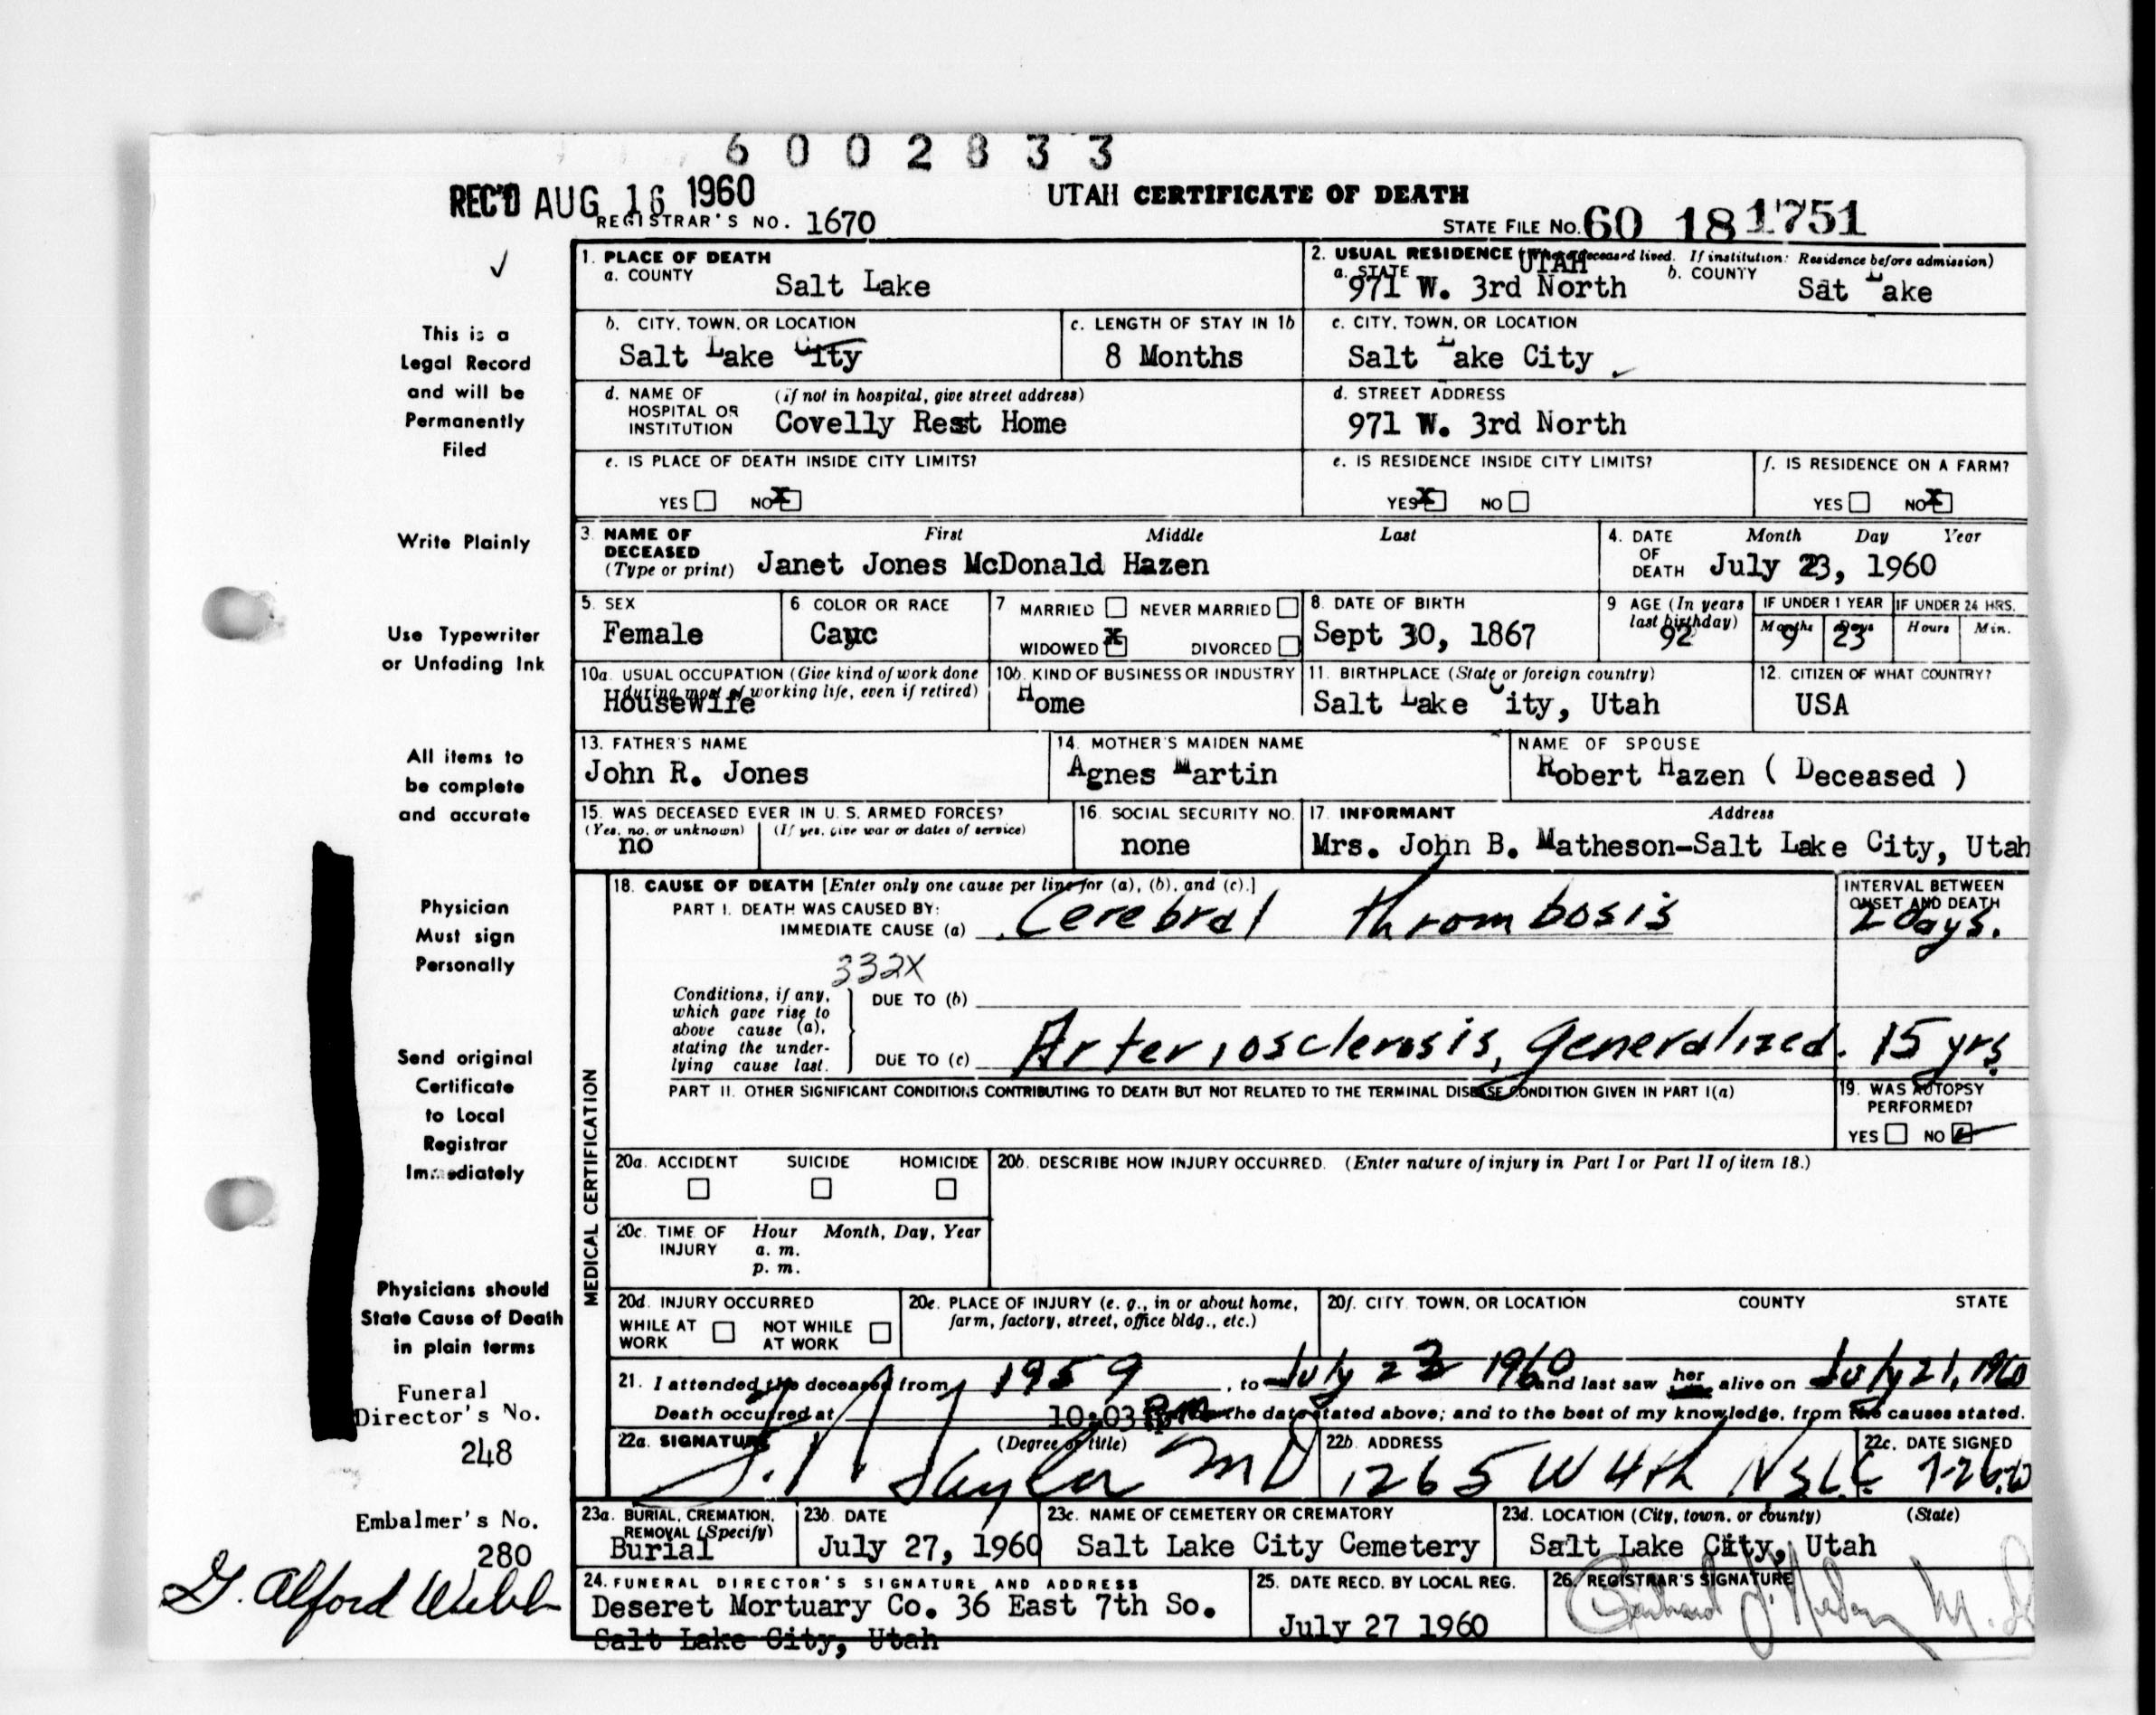 6 0 0 2 8 3 3
REC'D AUG 16 1960
UTAH CERTIFICATE OF DEATH
REGISTRAR'S NO. 1670
STATE FILE NO. 60 18 1751
This is a
Legal Record
and will be
Permanently
Filed
Write Plainly
Use Typewriter
or Unfading Ink
All items to
be complete
and accurate
Physician
Must sign
Personally
Send original
Certificate
to Local
Registrar
Immediately
Physicians should
State Cause of Death
in plain terms
Funeral
Director's No.
248
Embalmer's No.
280
G. Alford Webb
1. PLACE OF DEATH
a. COUNTY
Salt Lake
2. USUAL RESIDENCE (Where deceased lived. If institution: Residence before admission)
a. STATE UTAH
971 W. 3rd North
b. COUNTY
Sat Lake
b. CITY, TOWN, OR LOCATION
Salt Lake City
c. LENGTH OF STAY IN 1b
8 Months
c. CITY, TOWN, OR LOCATION
Salt Lake City
d. NAME OF HOSPITAL OR INSTITUTION (if not in hospital, give street address)
Covelly Rest Home
d. STREET ADDRESS
971 W. 3rd North
e. IS PLACE OF DEATH INSIDE CITY LIMITS?
YES NO X
e. IS RESIDENCE INSIDE CITY LIMITS?
YES X NO
f. IS RESIDENCE ON A FARM?
YES NO X
3. NAME OF DECEASED (Type or print)
First Middle Last
Janet Jones McDonald Hazen
4. DATE OF DEATH
Month Day Year
July 23, 1960
5. SEX
Female
6 COLOR OR RACE
Cauc
7 MARRIED NEVER MARRIED
WIDOWED X DIVORCED
8. DATE OF BIRTH
Sept 30, 1867
9 AGE (In years last birthday)
92
IF UNDER 1 YEAR
Months Days
9 23
IF UNDER 24 HRS.
Hours Min.
10a. USUAL OCCUPATION (Give kind of work done during most of working life, even if retired)
Housewife
10b. KIND OF BUSINESS OR INDUSTRY
Home
11. BIRTHPLACE (State or foreign country)
Salt Lake City, Utah
12. CITIZEN OF WHAT COUNTRY?
USA
13. FATHER'S NAME
John R. Jones
14. MOTHER'S MAIDEN NAME
Agnes Martin
NAME OF SPOUSE
Robert Hazen ( Deceased )
15. WAS DECEASED EVER IN U. S. ARMED FORCES?
(Yes, no, or unknown) (If yes, give war or dates of service)
no
16. SOCIAL SECURITY NO.
none
17. INFORMANT Address
Mrs. John B. Matheson-Salt Lake City, Utah
MEDICAL CERTIFICATION
18. CAUSE OF DEATH [Enter only one cause per line for (a), (b), and (c).]
PART I. DEATH WAS CAUSED BY:
IMMEDIATE CAUSE (a) Cerebral thrombosis
INTERVAL BETWEEN ONSET AND DEATH
2 days.
332X
Conditions, if any, which gave rise to above cause (a), stating the underlying cause last.
DUE TO (b)
DUE TO (c) Arteriosclerosis, generalized. 15 yrs.
PART II. OTHER SIGNIFICANT CONDITIONS CONTRIBUTING TO DEATH BUT NOT RELATED TO THE TERMINAL DISEASE CONDITION GIVEN IN PART I(a)
19. WAS AUTOPSY PERFORMED?
YES NO ✓
20a. ACCIDENT SUICIDE HOMICIDE
20b. DESCRIBE HOW INJURY OCCURRED. (Enter nature of injury in Part I or Part II of item 18.)
20c. TIME OF INJURY
Hour Month, Day, Year
a. m.
p. m.
20d. INJURY OCCURRED
WHILE AT WORK NOT WHILE AT WORK
20e. PLACE OF INJURY (e. g., in or about home, farm, factory, street, office bldg., etc.)
20f. CITY, TOWN, OR LOCATION COUNTY STATE
21. I attended the deceased from 1959, to July 23 1960 and last saw her alive on July 21, 1960
Death occurred at 10:03 Pm on the date stated above; and to the best of my knowledge, from the causes stated.
22a. SIGNATURE (Degree or title)
Taylor MD
22b. ADDRESS
1265 W 4th N SLC
22c. DATE SIGNED
7-26-60
23a. BURIAL, CREMATION, REMOVAL (Specify)
Burial
23b. DATE
July 27, 1960
23c. NAME OF CEMETERY OR CREMATORY
Salt Lake City Cemetery
23d. LOCATION (City, town, or county) (State)
Salt Lake City, Utah
24. FUNERAL DIRECTOR'S SIGNATURE AND ADDRESS
Deseret Mortuary Co. 36 East 7th So.
Salt Lake City, Utah
25. DATE RECD. BY LOCAL REG.
July 27 1960
26. REGISTRAR'S SIGNATURE